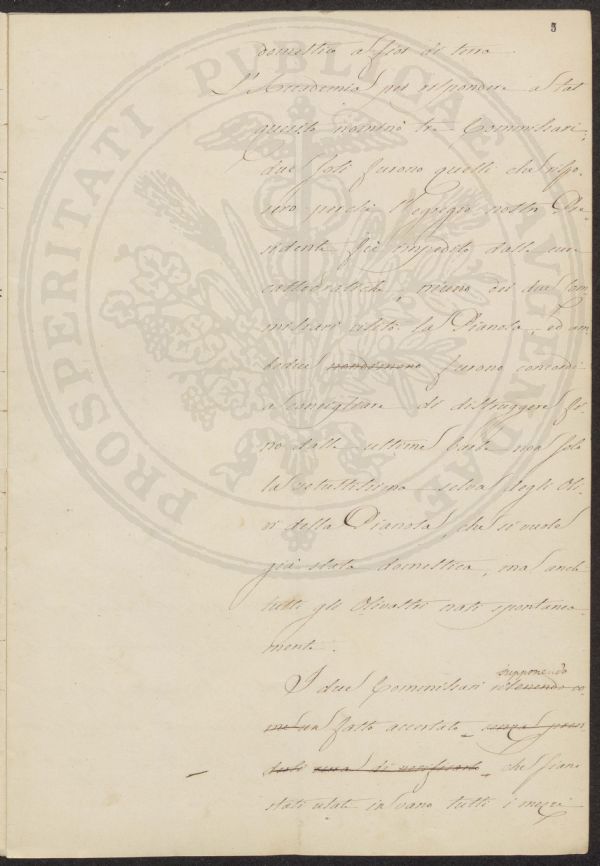 3
domestico a fior di terra.
L'Accademia per rispondere a tal
quesito nominò tre Commissari,
due soli furono quelli che rispo-
sero perchè l'egregio nostro Pre-
sidente fù impedito dalle cure
cattedratiche; niuno dei due Com
missari visitò la Pianola, ed am
bedue nondimeno furono concordi
a consigliare di distruggere fi
no dalle ultime barbe non solo
la vetustissima selva degli Oli-
vi della Pianola, che si vuole
già stata domestica, ma anche
tutti gli Olivastri nati spontanea
mente.
supponendo
I due Commissari ritenendo co-
me un fatto accertato senza pren
dersi cura di verificarlo, che siano
stati usati invano tutti i mezzi
PROSPERITATI PUBLICAE AUGENDAE